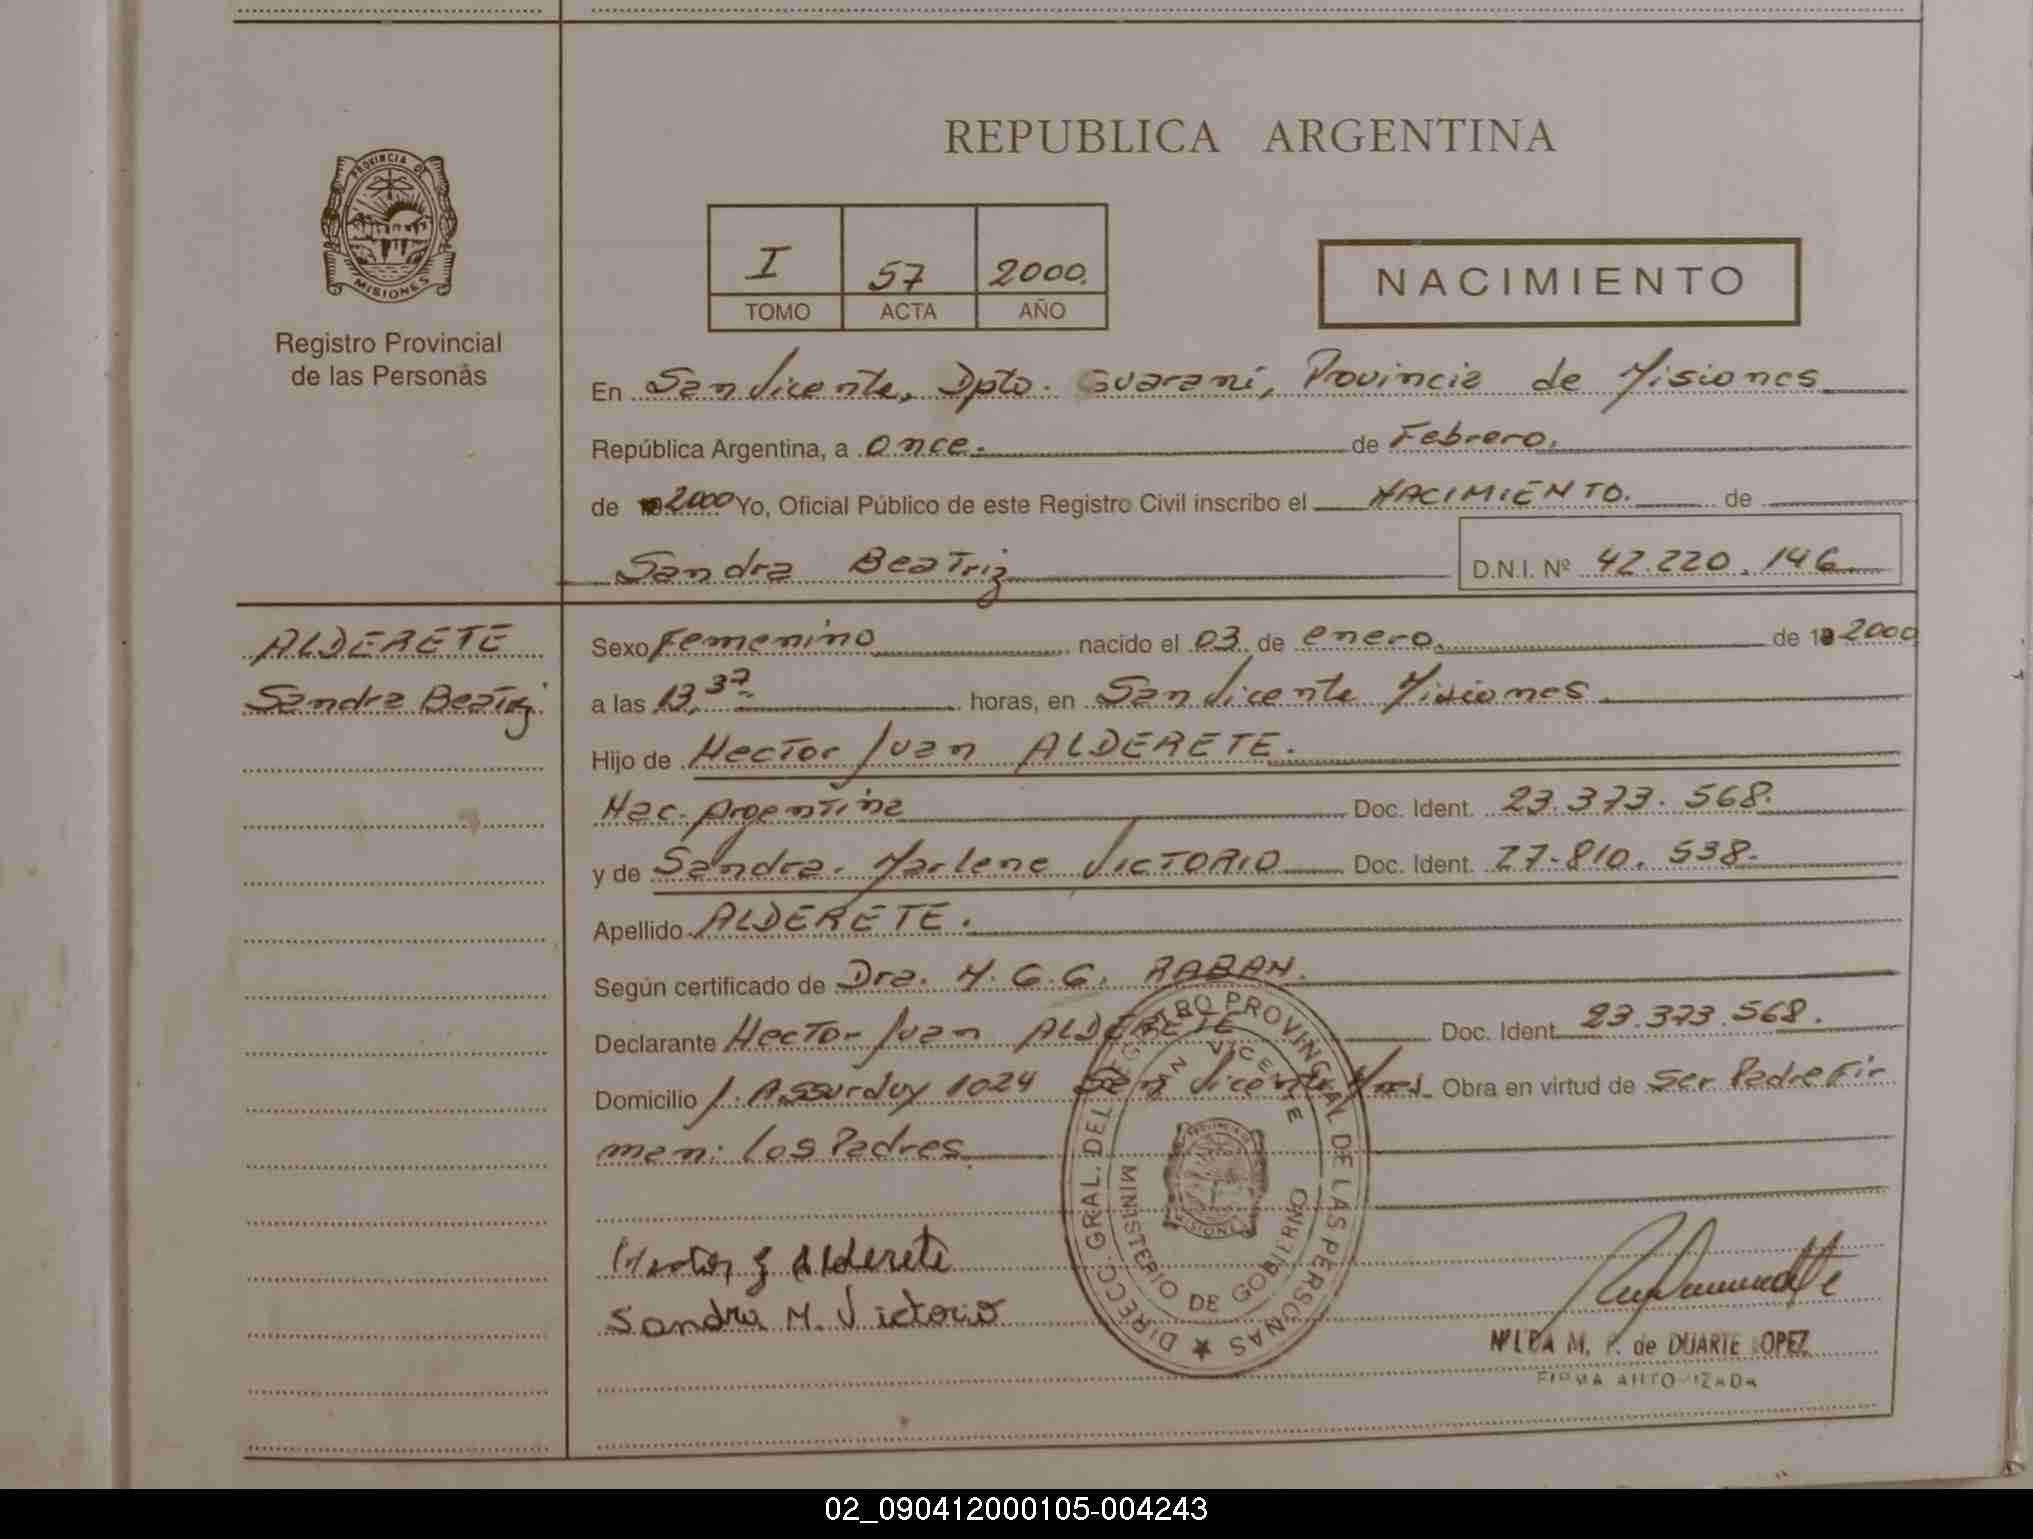 REPUBLICA ARGENTINA
PROVINCIA DE
MISIONES
Registro Provincial
de las Personas
I 57 2000.
TOMO ACTA AÑO
NACIMIENTO
En San Vicente, Dpto. Guaraní, Provincia de Misiones
República Argentina, a once. de Febrero.
de 2000 Yo, Oficial Público de este Registro Civil inscribo el NACIMIENTO. de
Sandra Beatriz D.N.I. Nº 42.220.146
ALDERETE
Sandra Beatriz
Sexo Femenino nacido el 03 de enero. de 2000
a las 13,37 horas, en San Vicente Misiones
Hijo de Hector Juan ALDERETE.
Nac. Argentina Doc. Ident. 23.373.568.
y de Sandra. Marlene VICTORIO Doc. Ident. 27.810.538.
Apellido ALDERETE.
Según certificado de Dra. M.G.G. RABAN.
Declarante Hector Juan ALDERETE Doc. Ident. 23.373.568.
Domicilio J. Assurduy 1024 San Vicente Mnes. Obra en virtud de ser Padre Fir
man: los Padres.
Hector J Alderete
Sandra M. Victorio
DIRECC. GRAL. DEL REGISTRO PROVINCIAL DE LAS PERSONAS
SAN VICENTE
MINISTERIO DE GOBIERNO
MISIONES
M. P. de DUARTE LOPEZ
FIRMA AUTORIZADA
02_090412000105-004243